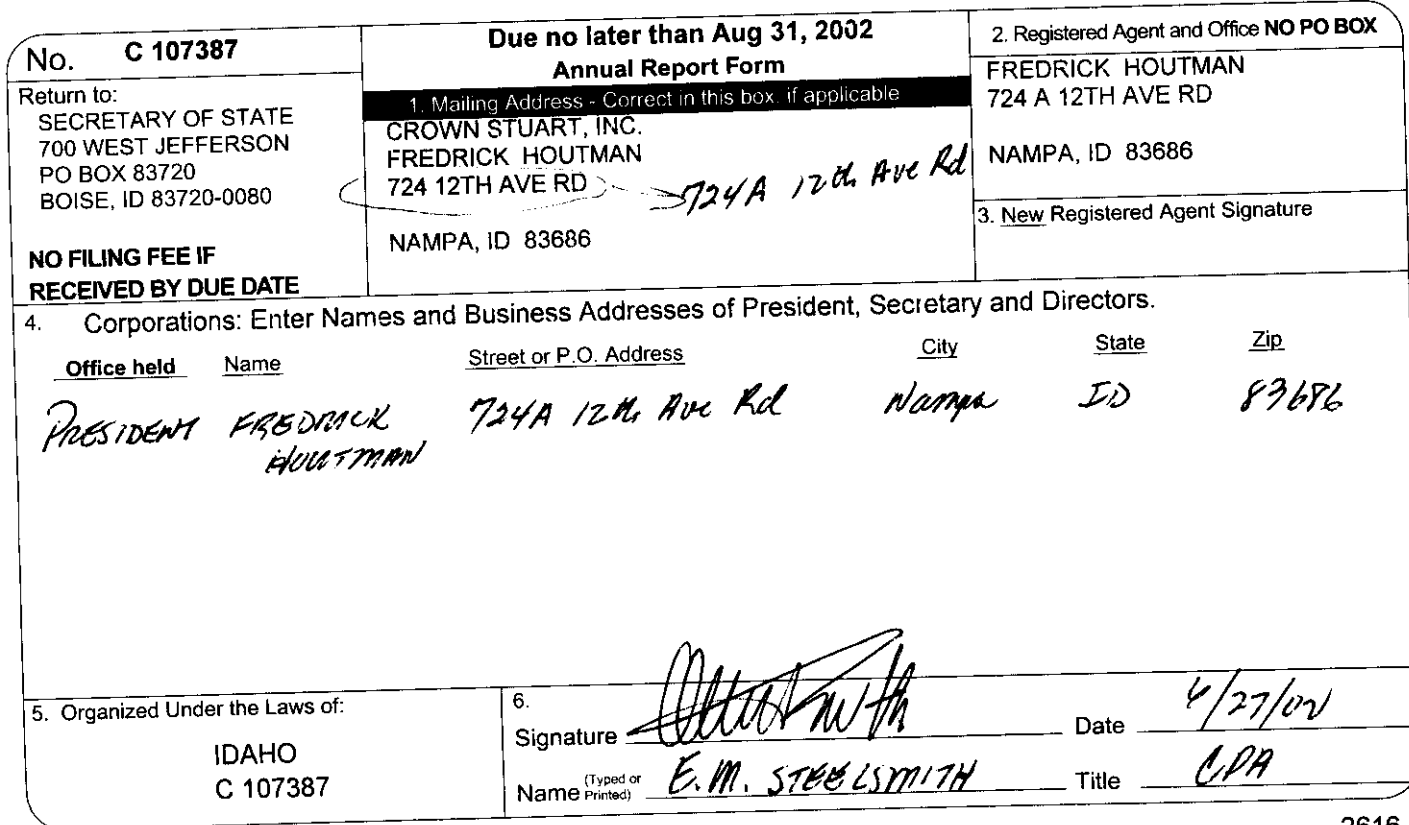 No. C 107387
Return to:
SECRETARY OF STATE
700 WEST JEFFERSON
PO BOX 83720
BOISE, ID 83720-0080
NO FILING FEE IF
RECEIVED BY DUE DATE
Due no later than Aug 31, 2002
Annual Report Form
1. Mailing Address - Correct in this box, if applicable
CROWN STUART, INC.
FREDRICK HOUTMAN
724 12TH AVE RD
724A 12th Ave Rd
NAMPA, ID 83686
2. Registered Agent and Office NO PO BOX
FREDRICK HOUTMAN
724 A 12TH AVE RD
NAMPA, ID 83686
3. New Registered Agent Signature
4. Corporations: Enter Names and Business Addresses of President, Secretary and Directors.
Office held Name Street or P.O. Address City State Zip
PRESIDENT FREDRICK 724A 12th Ave Rd Nampa ID 83686
HOUTMAN
5. Organized Under the Laws of:
IDAHO
C 107387
6.
Signature Date /27/02
Name (Typed or Printed) E.M. STEELSMITH Title CPA
2616